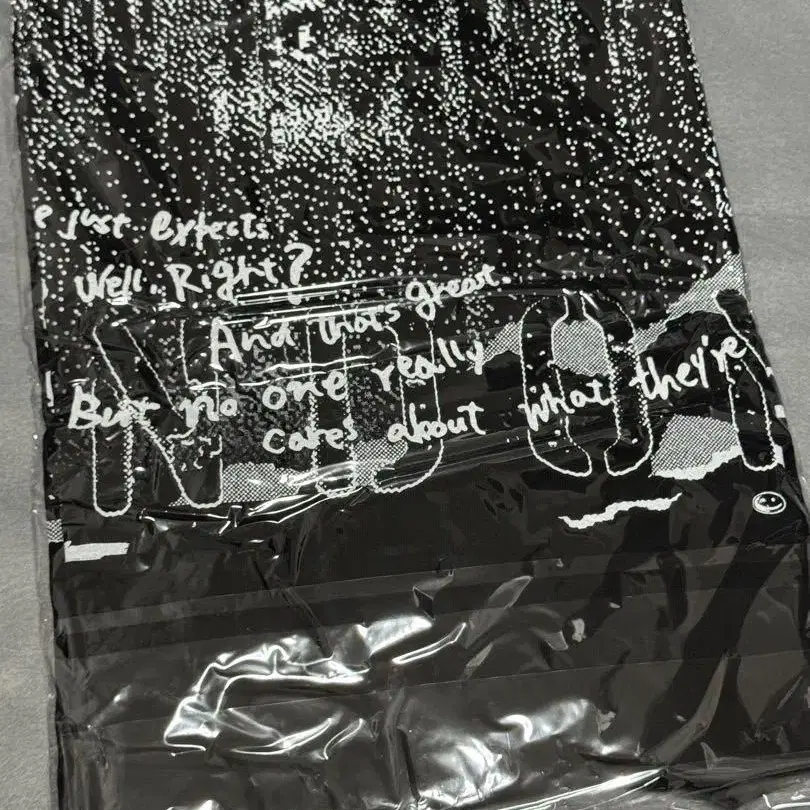 e just expects
Well.. Right?
And that's great.
But no one really
cares about what they're